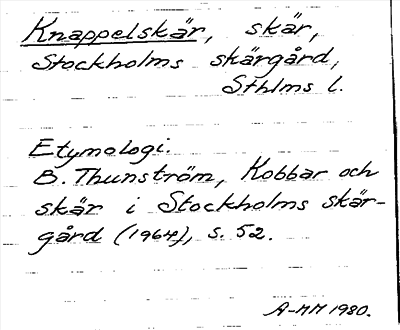 Knappelskär, skär,
Stockholms skärgård,
Sthlms l.
Etymologi.
B. Thunström, Kobbar och
skär i Stockholms skär-
gård (1964), s. 52.
A-MM 1980.